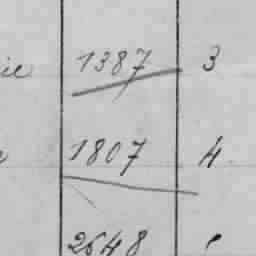 1387 3
1807 4
2648